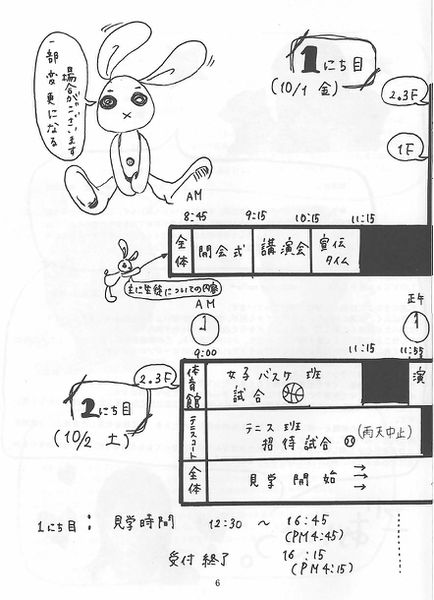 一部変更になる
場合がございます
1にち目
(10/1 金)
2.3F
1F
AM
8:45 9:15 10:15 11:15
全体 開会式 講演会 宣伝タイム
主に生徒についての内容
AM
正午
9:00 11:15 11:55
2.3F
体育館 女子バスケ班 演
試合
テニスコート テニス班
招待試合 (雨天中止)
全体 見学開始 → → →
2にち目
(10/2 土)
1にち目: 見学時間 12:30 ~ 16:45
(PM4:45)
受付終了 16:15
(PM4:15)
6